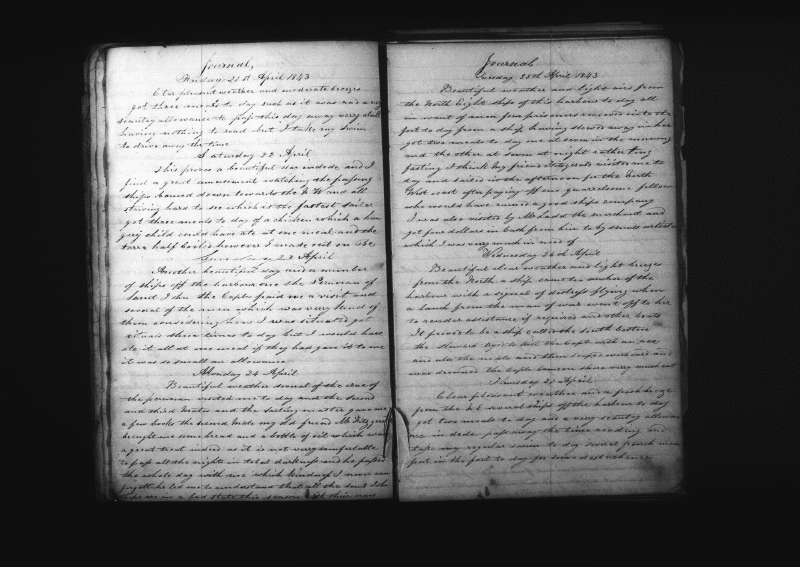 Journal,
Friday 21st April 1843
Clear pleasant weather and moderate breezes
got three meals to day such as it was and a very
scanty allowance to pass this day away very dull
having nothing to read but I take my swim
to drive away the time
Saturday 22 April
This proves a beautiful day indeed and I
find a great amusement watching the passing
ships bound down towards the N W and all
striving hard to see which is the fastest sailer
got three meals to day of a chicken which a hun
gry child could have ate at one meal and the
taro half boiled however I made out on the
Sunday 23 April
Another beautiful day and a number
of ships off the harbour one the Peruvian of
Saint Johns the Capt paid me a visit and
several of the men which was very kind of
them considering how I was situated got
vituals three times to day but I would have
ate it all at one meal if they had gave it to me
it was so small an allowance
Monday 24 April
Beautiful weather several of the crew of
the peruvian visited me to day and the second
and third Mates and the sailing master gave me
a few books the second Mate my old friend Mr Fitzgerald
brought me some bread and a bottle of oil which was
a great treat indeed as it is not very comfortable
to pass all the nights in total darkness and he passed
the whole day with me which kindness I never can
forget he led me to understand that all the Saint Johns
ships are in a bad state this season with their crews
Journal
Tuesday 25th April 1843
Beautiful weather and light airs from
the North Eight ships off this harbour to day all
in want of men five prisoners received into the
fort to day from a ship having stowed away in her
got two meals to day one at seven in the morning
and the other at seven at night rather long
fasting I think My friend Fitzgerald visited me to
day and sailed in the afternoon for the North
West coast after paying off one quarrelsome fellow
who would have ruined a good ships company
I was also visited by Mr Ladd the merchant and
got five dollars in Cash from him to by small articles
which I was very much in need of
Wednesday 26th April
Beautiful clear weather and light breezes
from the North a ship came to anchor off the
harbour with a signal of distress flying when
a launch from the man of war went off to her
to render assistance if required and other boats
It proved to be a ship called the South boston
the Steward tryed to kill the Capt with an axe
and also the mate and then leaped overboard and
was drowned the Capts Cameron share very much cut
Thursday 27 April
Clear pleasant weather and a fresh breeze
from the N E several ships off the harbour to day
got two meals to day and a very scanty allowan
nce in deed pass away the time reading and
take my regular swim to day several french men
put in the fort to day for some disturbance